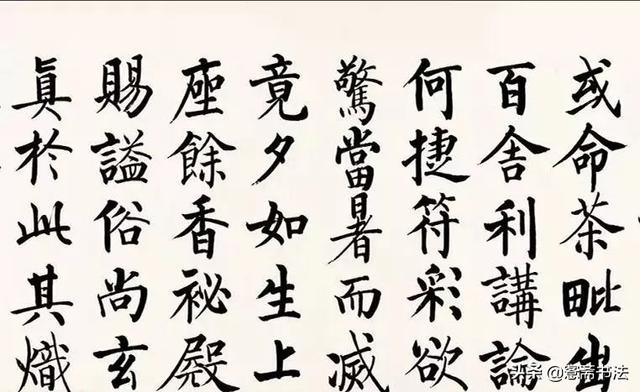 或命茶毗出
百舍利講論
何捷符彩欲
驚當暑而滅
竟夕如生上
座餘香祕殿
賜謚俗尚玄
眞於此其熾
头条 @斋书法